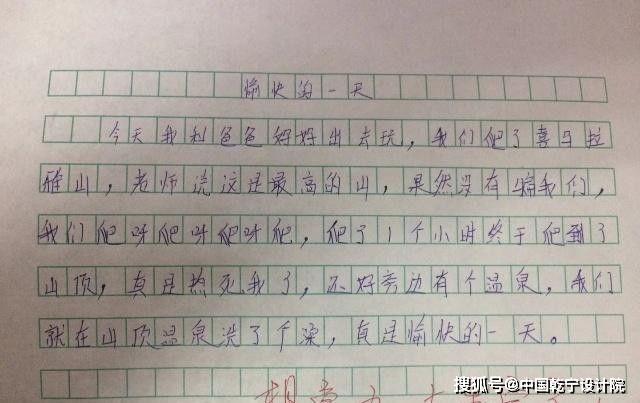 愉快的一天
今天我和爸爸妈妈出去玩，我们爬了喜马拉
雅山，老师说这是最高的山，果然没有骗我们，
我们爬呀爬呀爬呀爬，爬了1个小时终于爬到了
山顶，真是热死我了，还好旁边有个温泉，我们
就在山顶温泉洗了个澡，真是愉快的一天。
搜狐号@中国乾宁设计院